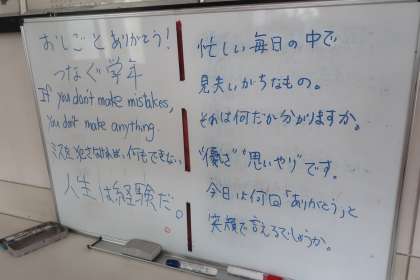 おしごとありがとう!
つなぐ学年
If you don't make mistakes,
You don't make anything
ミスを犯さなければ、何もできない
人生は経験だ。
忙しい毎日の中で
見失いがちなもの。
それは何だか分かりますか。
"優しさ" "思いやり"です。
今日は何回「ありがとう」と
笑顔で言えるでしょうか。